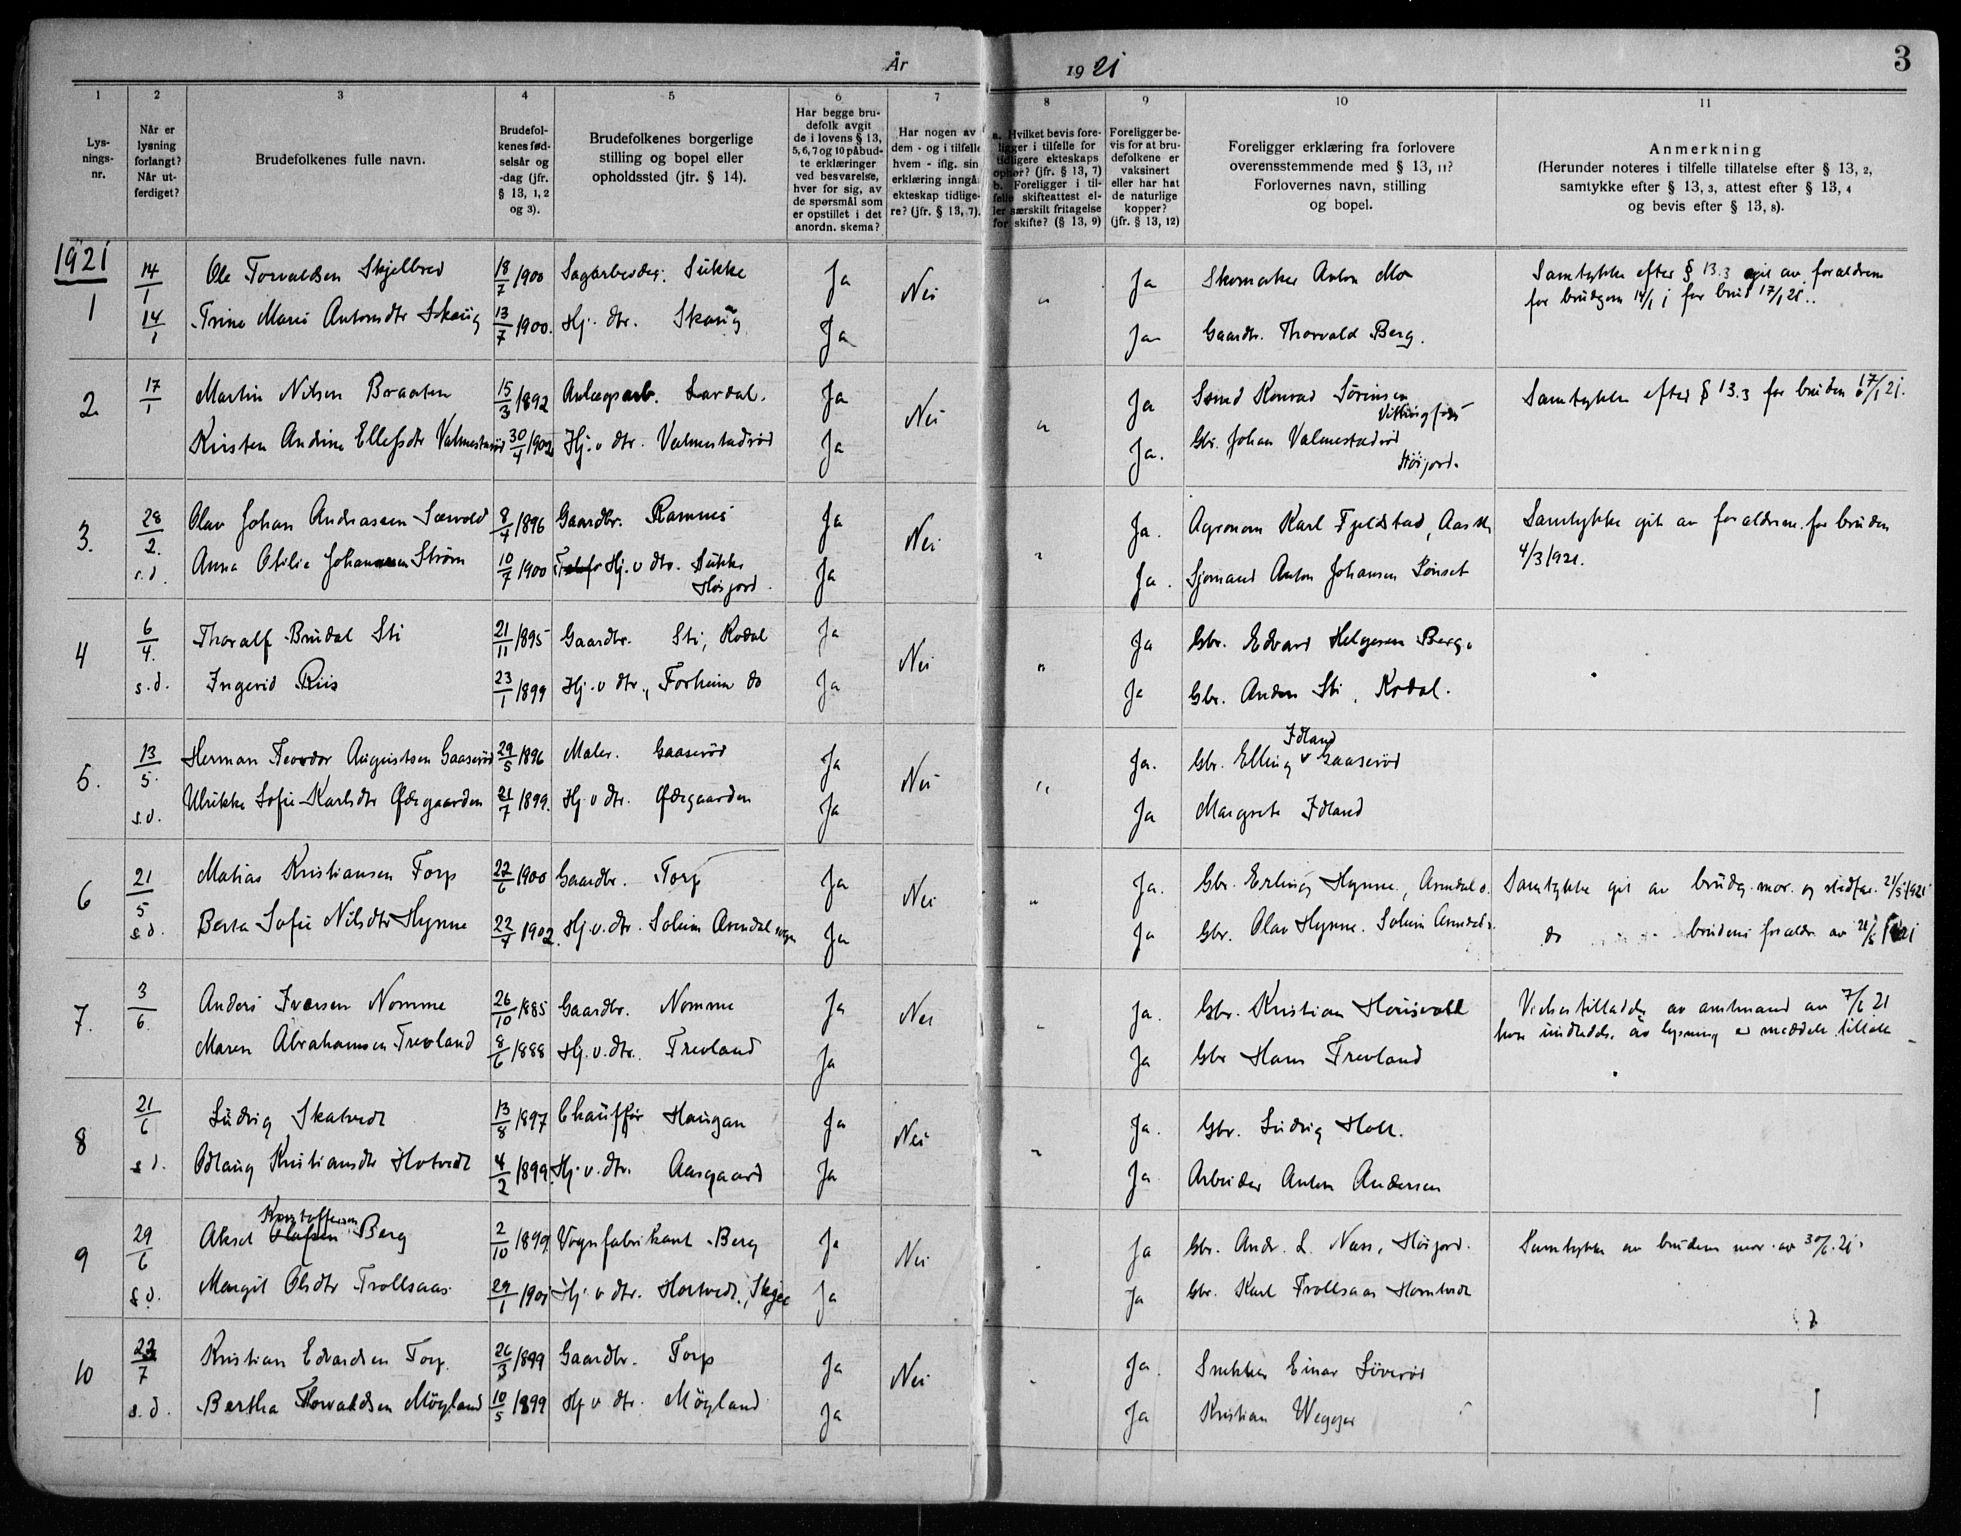 År 1921
3
1
2
3
4
5
6
7
8
9
10
11
Lys-
nings-
nr.
Når er
lysning
forlangt?
Når ut-
ferdiget?
Brudefolkenes fulle navn.
Brudefol-
kenes fød-
selsår og
-dag (jfr.
§ 13, 1, 2
og 3).
Brudefolkenes borgerlige
stilling og bopel eller
opholdssted (jfr. § 14).
Har begge bru-
defolk avgit
de i lovens § 13,
5, 6, 7 og 10 påbud-
te erklæringer
ved besvarelse,
hver for sig, av
de spørsmål som
er opstillet i det
anordn. skema?
Har nogen av
dem - og i tilfelle
hvem - iflg. sin
erklæring inngå
ekteskap tidlige-
re? (jfr. § 13, 7).
a. Hvilket bevis fore-
ligger i tilfelle for
tidligere ekteskaps
ophør? (jfr. § 13, 7)
b. Foreligger i til-
felle skifteattest el-
ler særskilt fritagelse
for skifte? (§ 13, 9)
Foreligger be-
vis for at bru-
defolkene er
vaksinert
eller har hat
de naturlige
kopper?
(jfr. § 13, 12)
Foreligger erklæring fra forlovere
overensstemmende med § 13, 11?
Forlovernes navn, stilling
og bopel.
Anmerkning
(Herunder noteres i tilfelle tillatelse efter § 13, 2,
samtykke efter § 13, 3, attest efter § 13, 4
og bevis efter § 13, 8).
1921
1 14/1 Ole Torvaldsen Skjelbred 18/7 1900 Sagarbeider. Sukke Ja Nei " Ja Skomaker Anton Mo Samtykke efter § 13.3 git av forældrene
14/1 Trine Marie Antonsdtr Skaug 13/7 1900. Hj. dtr. Skaug Ja Ja Gaardbr. Thorvald Berg. for brudgom 14/1 i for brud 17/1 21..
2 17/1 Martin Nilsen Braaten 15/3 1892 Anlægsarb. Lardal. Ja Nei " Ja Smed Konrad Sörensen Samtykke efter § 13.3 for bruden 17/1 21.
Kirsten Andrine Ellefsdtr Valmestadrød 30/4 1902 Hj. v dtr. Valmestadrød Ja Ja. Gbr. Johan Valmestadrød
Høijord.
3. 28/2. Olav Johan Andreassen Sævold 8/4 1896 Gaardbr. Ramnes Ja Nei " Ja. Agronom Karl Fjeldstad, Aas Samtykke git av forældrene for bruden
s.d. Anna Otilie Johannesen Strøm 10/7 1900 Hj. v dtr. Sukke Ja Ja. Sjømand Anton Johansen 4/3 1921.
Høijord.
4 6/4. Thoralf Brudal Sti 21/11 1895 Gaardbr. Sti, Kodal Ja Nei " Ja Gbr. Edvard Helgesen Berg.
s.d. Ingerid Riis 23/1 1899 Hj. v dtr., Forheim do Ja Ja Gbr. Anders Sti, Kodal.
5. 13/5. Herman Teodor Augustsen Gaaserød 29/5 1896 Maler. Gaaserød Ja Nei " Ja. Gbr. Elling Idland v Gaaserød
s.d. Ulrikke Sofie Karlsdtr Øvregaarden 21/7 1899. Hj. v dtr. Øvregaarden Ja Ja Margrete Idland
6 21/5 Matias Kristiansen Torp 22/6 1900 Gaardbr. Torp Ja Nei " Ja. Gbr. Erling Hynne, Arendal s. Samtykke git av brudg. mor. og stedfar. 21/5 1921
s.d. Berta Sofie Nilsdtr Hynne 22/7 1902. Hj. v. dtr. Solum Arendal sogn Ja Ja Gbr. Olav Hynne. Solum Arendal s. do brudens forældr. av 21/5 1921
7. 3/6. Anders Iversen Nomme 26/10 1885 Gaardbr. Nomme Ja Nei " Ja. Gbr. Kristian av amtmand av 7/6 21
Maren Abrahamsen Trevland 8/6 1888 Hj. v. dtr. Trevland Ja Ja Gbr Hans Trevland lysning er meddelt
8 21/6 Ludvig Skatvedt 13/8 1897 Chauffør Haugan Ja Nei " Ja. Gbr. Ludvig Holt.
s.d. Odlaug Kristiansdtr Hotvedt 4/2 1899. Hj. v. dtr. Aasgaard Ja Ja Arbeider Anton Andersen
9 29/6 Aksel Kristoffersen Berg 2/10 1899 Vognfabrikant Berg Ja Nei " Ja Gbr. Andr. L. Næss, Høijord. Samtykke av brudens mor av 30/6.21.
s.d. Margit Olsdtr Trollsaas 29/1 1901 Hj. v dtr. Hortvedt, Skjee Ja Ja Gbr. Karl Trollsaas Horntvedt
10 23/7 Kristian Edvardsen Torp. 26/3 1899 Gaardbr. Torp Ja Nei " Ja. Snekker Einar Löverød
s.d. Bertha Thorvaldsen Möyland 10/5 1899 Hj v dtr. Möyland Ja Ja Kristian Wegger